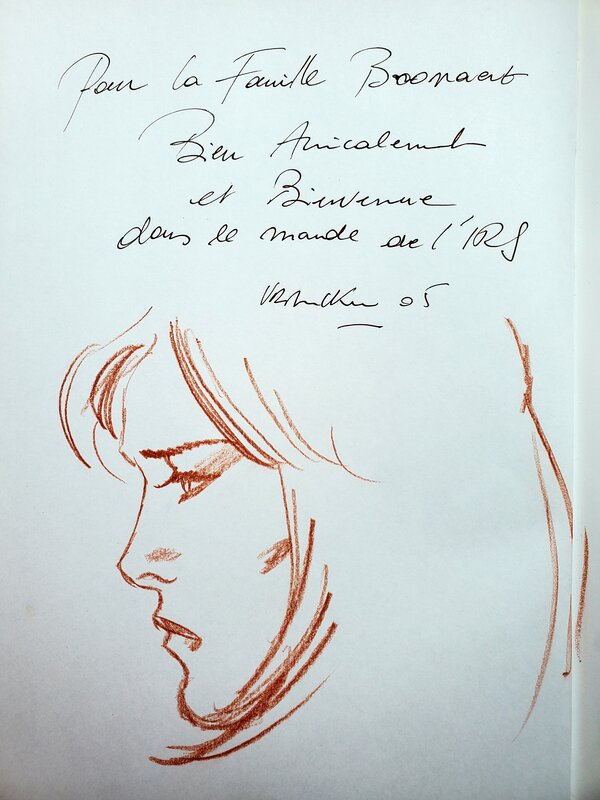 Pour la Famille Boonaert
Bien Amicalement
et Bienvenue
dans le monde de l'IRS
Vrancken 05